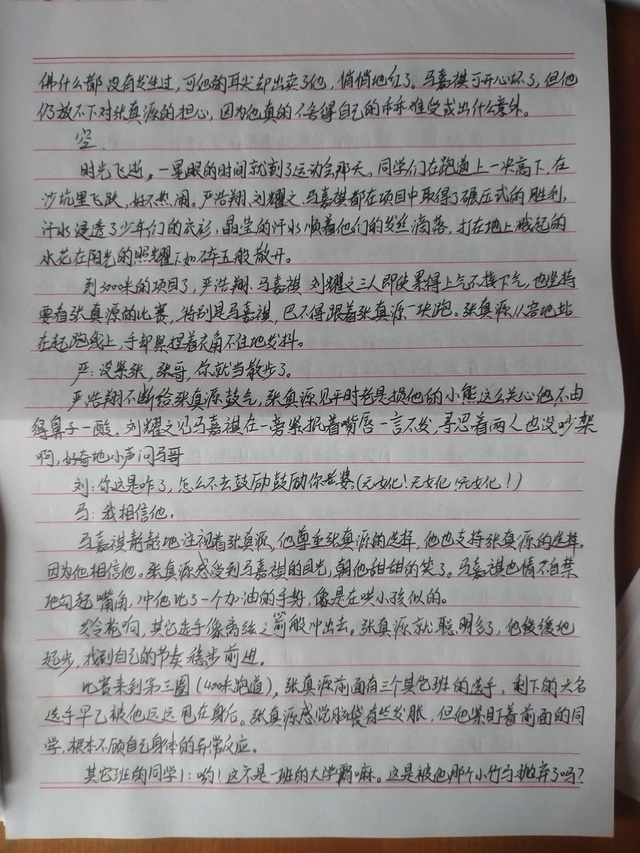 佛什么都没有发生过,可他的耳尖却出卖了他,悄悄地红了。马嘉祺可开心坏了,但他
仍放不下对张真源的担心,因为他真的不舍得自己的乖乖难受或出什么意外。
空.
时光飞逝,一晃眼的时间就到了运动会那天。同学们在跑道上一决高下,在
沙坑里飞跃,好不热闹。严浩翔、刘耀文、马嘉祺都在项目中取得了碾压式的胜利,
汗水浸透了少年们的衣衫,晶莹的汗水顺着他们的发丝滴落,打在地上溅起的
水花在阳光的照耀下如碎玉般散开。
到3000米的项目了,严浩翔、马嘉祺、刘耀文三人即使累得上气不接下气,也坚持
要看张真源的比赛,特别是马嘉祺,巴不得跟着张真源一块跑。张真源从容地站
在起跑线上,手却紧捏着衣角不住地发抖。
严:没关张,张哥,你就当散步了。
严浩翔不断给张真源鼓气,张真源见平时老是损他的小熊这么关心他不由
得鼻子一酸。刘耀文见马嘉祺在一旁紧抿着嘴唇一言不发,寻思着两人也没吵架
啊,好奇地小声问马哥
刘:你这是咋了,怎么不去鼓励鼓励你老婆(无女化!无女化!无女化!)
马:我相信他。
马嘉祺静静地注视着张真源,他尊重张真源的选择,他也支持张真源的选择,
因为他相信他。张真源感受到马嘉祺的目光,朝他甜甜的笑了。马嘉祺也情不自禁
地勾起嘴角,冲他比了一个加油的手势,像是在哄小孩似的。
发令枪响,其它选手像离弦之箭般冲出去。张真源就聪明多了,他缓缓地
起步,找到自己的节奏稳步前进。
比赛来到第三圈(400米跑道),张真源前面有三个其它班的选手,剩下的大名
选手早已被他远远甩在身后。张真源感觉脑袋有些发胀,但他紧盯着前面的同
学,根本不顾自己身体的异常反应。
其它班的同学1:哟!这不是一班的大学霸嘛。这是被他那个小竹马抛弃了吗?